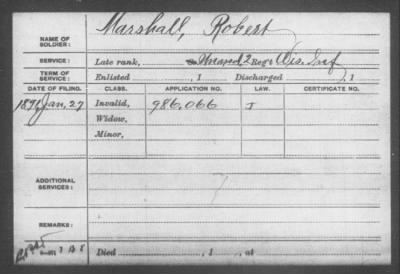 NAME OF SOLDIER: Marshall, Robert
SERVICE: Late rank, Unasgd, 2 Reg't Wis. Inf
TERM OF SERVICE: Enlisted , 1 Discharged , 1
DATE OF FILING. CLASS. APPLICATION NO. LAW. CERTIFICATE NO.
1891 Jan. 27 Invalid, 986.066 J
Widow,
Minor,
ADDITIONAL SERVICES:
REMARKS:
Died , 1 , at